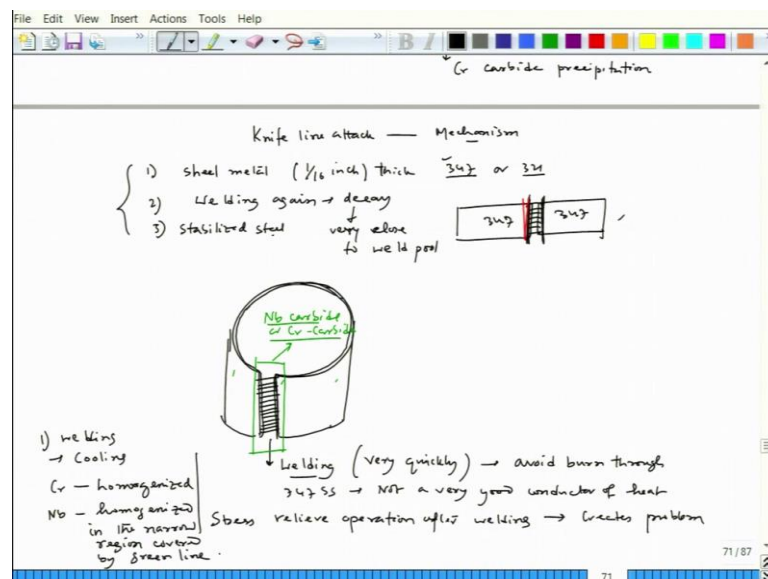 File Edit View Insert Actions Tools Help
Cr carbide precipitation
Knife line attack — Mechanism
1) sheel metal (1/16 inch) thick 347 or 321
2) Welding again → decay
very close to weld pool
3) stabilized steel
347 347
Nb carbide
or Cr-Carbide
1) welding
→ Cooling
Cr — homogenized
Nb — homogenized
in the narrow
region covered
by green line.
Welding (very quickly) → avoid burn through
347 SS → Not a very good conductor of heat
Stress relieve operation after welding → Creates problem
71 / 87
71